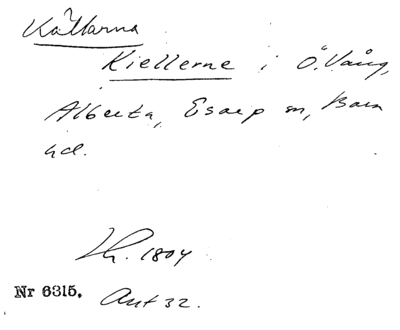 Källarna
Kiellerne i Ö. Vång,
Alberta, Esarp sn, Bara
hd.
Lk. 1804
Nr 6315. Akt 32.